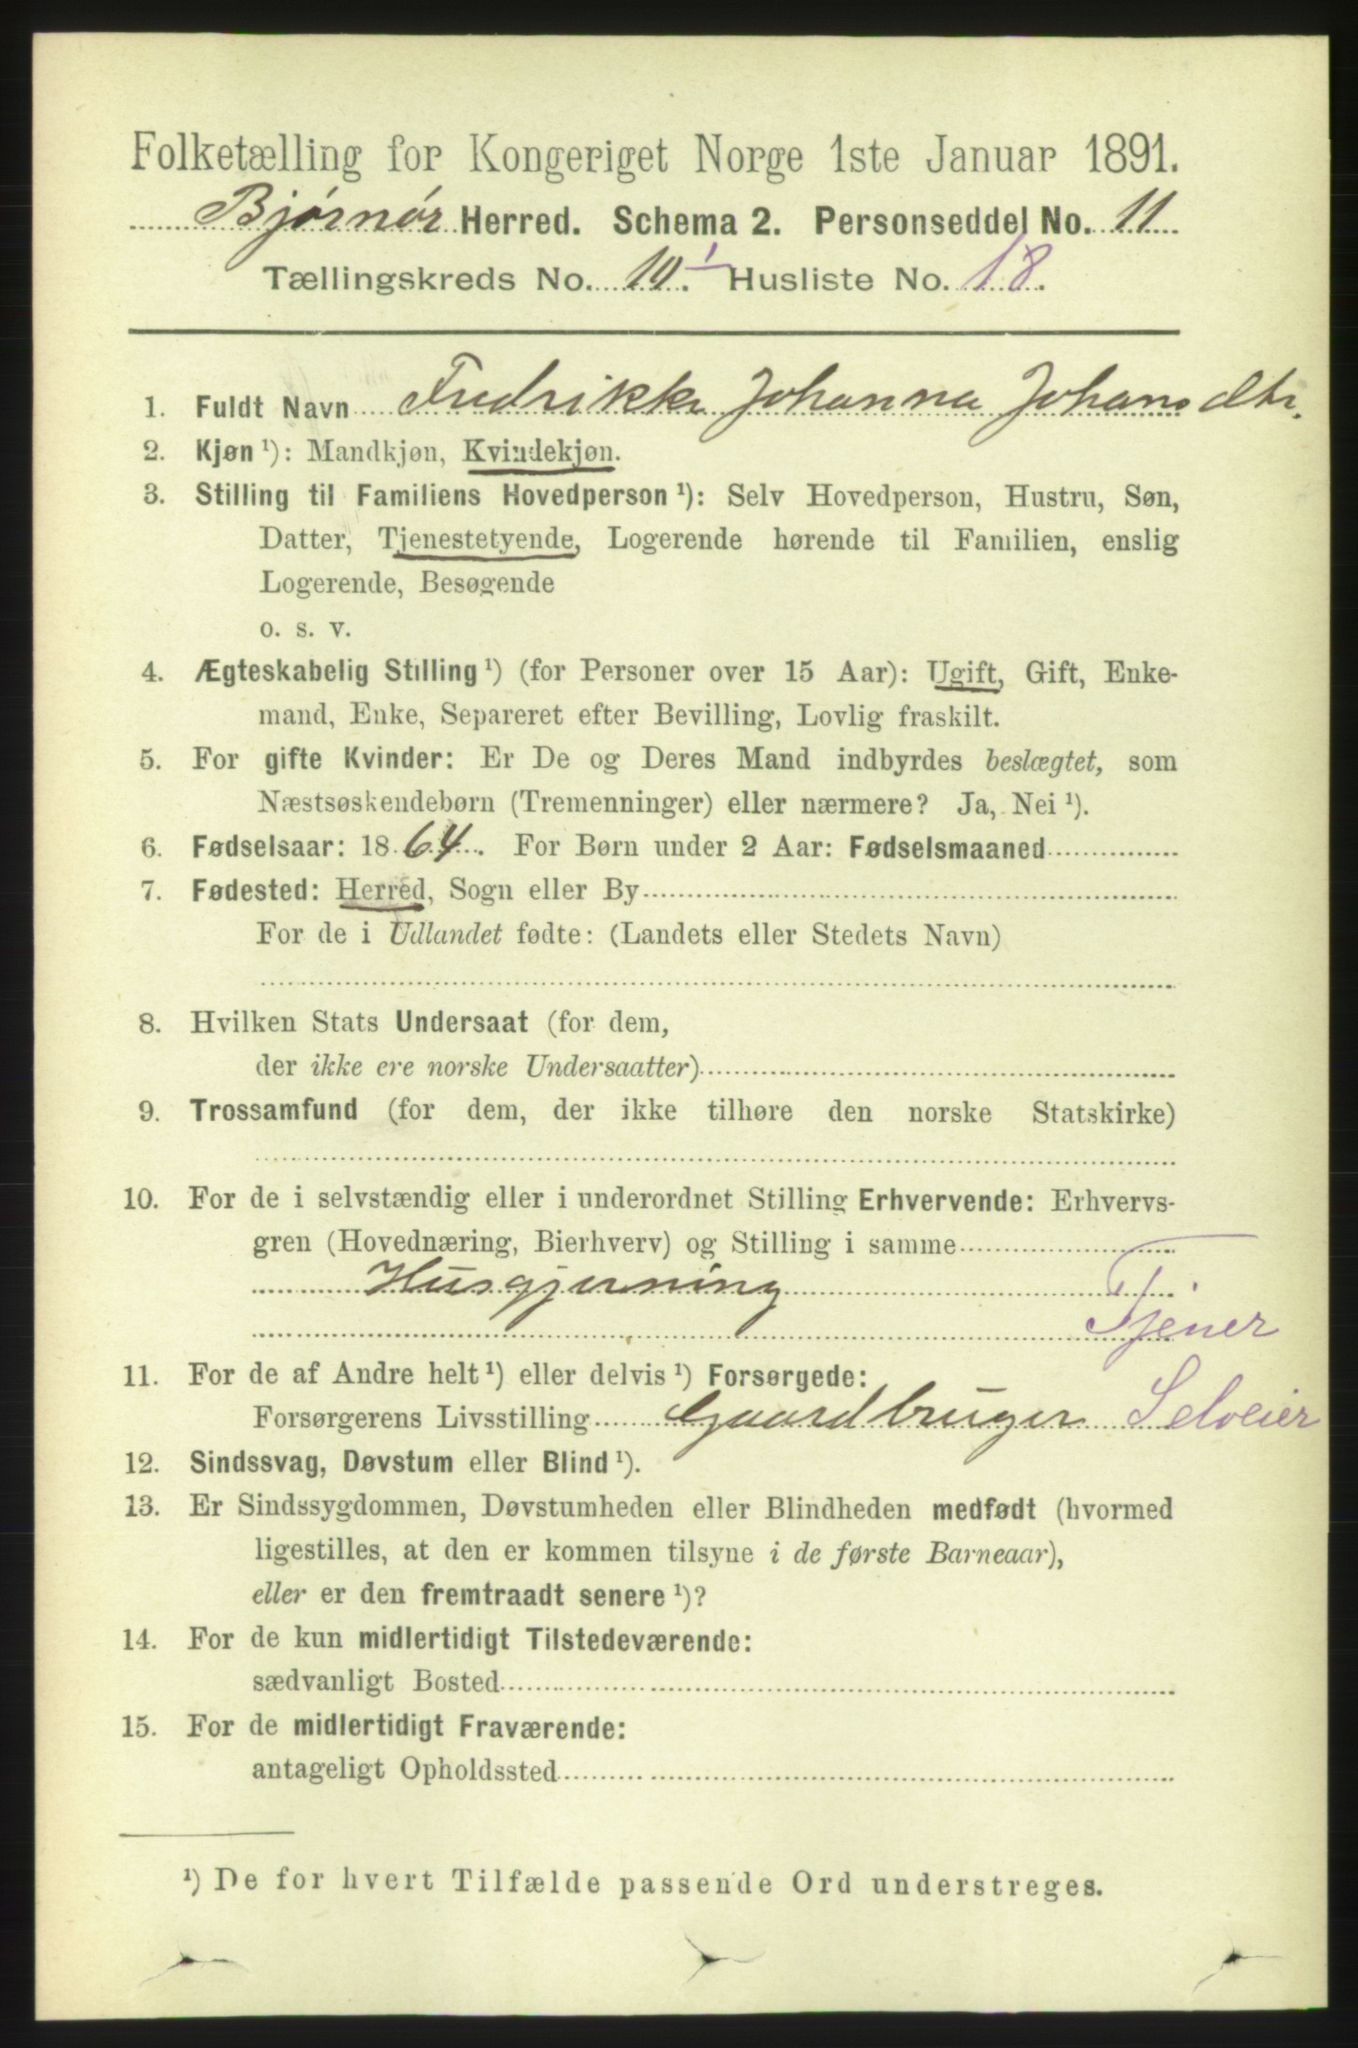 Folketælling for Kongeriget Norge 1ste Januar 1891.
Bjørnør Herred. Schema 2. Personseddel No. 11
Tællingskreds No. 10. 1 Husliste No. 18.
1. Fuldt Navn Fredrikke Johanna Johansdtr.
2. Kjøn ¹): Mandkjøn, Kvindekjøn.
3. Stilling til Familiens Hovedperson ¹): Selv Hovedperson, Hustru, Søn,
Datter, Tjenestetyende, Logerende hørende til Familien, enslig
Logerende, Besøgende
o. s. v.
4. Ægteskabelig Stilling ¹) (for Personer over 15 Aar): Ugift, Gift, Enke-
mand, Enke, Separeret efter Bevilling, Lovlig fraskilt.
5. For gifte Kvinder: Er De og Deres Mand indbyrdes beslægtet, som
Næstsøskendebørn (Tremenninger) eller nærmere? Ja, Nei ¹).
6. Fødselsaar: 1864. For Børn under 2 Aar: Fødselsmaaned
7. Fødested: Herred, Sogn eller By
For de i Udlandet fødte: (Landets eller Stedets Navn)
8. Hvilken Stats Undersaat (for dem,
der ikke ere norske Undersaatter)
9. Trossamfund (for dem, der ikke tilhøre den norske Statskirke)
10. For de i selvstændig eller i underordnet Stilling Erhvervende: Erhvervs-
gren (Hovednæring, Bierhverv) og Stilling i samme
Husgjerning
Tjener
11. For de af Andre helt ¹) eller delvis ¹) Forsørgede:
Forsørgerens Livsstilling Gaardbruger Selveier
12. Sindssvag, Døvstum eller Blind ¹).
13. Er Sindssygdommen, Døvstumheden eller Blindheden medfødt (hvormed
ligestilles, at den er kommen tilsyne i de første Barneaar),
eller er den fremtraadt senere ¹)?
14. For de kun midlertidigt Tilstedeværende:
sædvanligt Bosted
15. For de midlertidigt Fraværende:
antageligt Opholdssted
¹) De for hvert Tilfælde passende Ord understreges.